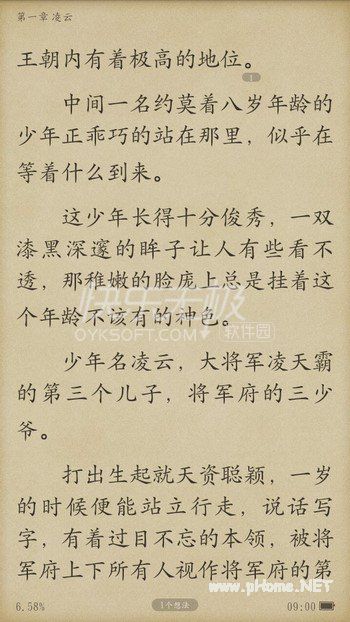 第一章 凌云
王朝内有着极高的地位。
1
中间一名约莫着八岁年龄的
少年正乖巧的站在那里，似乎在
等着什么到来。
这少年长得十分俊秀，一双
漆黑深邃的眸子让人有些看不
透，那稚嫩的脸庞上总是挂着这
个年龄不该有的神色。
快乐无极
OYKSOFT.COM 软件园
少年名凌云，大将军凌天霸
的第三个儿子，将军府的三少
爷。
打出生起就天资聪颖，一岁
的时候便能站立行走，说话写
字，有着过目不忘的本领，被将
军府上下所有人视作将军府的第
www.pHome.NET
6.58%
1个想法
09:00